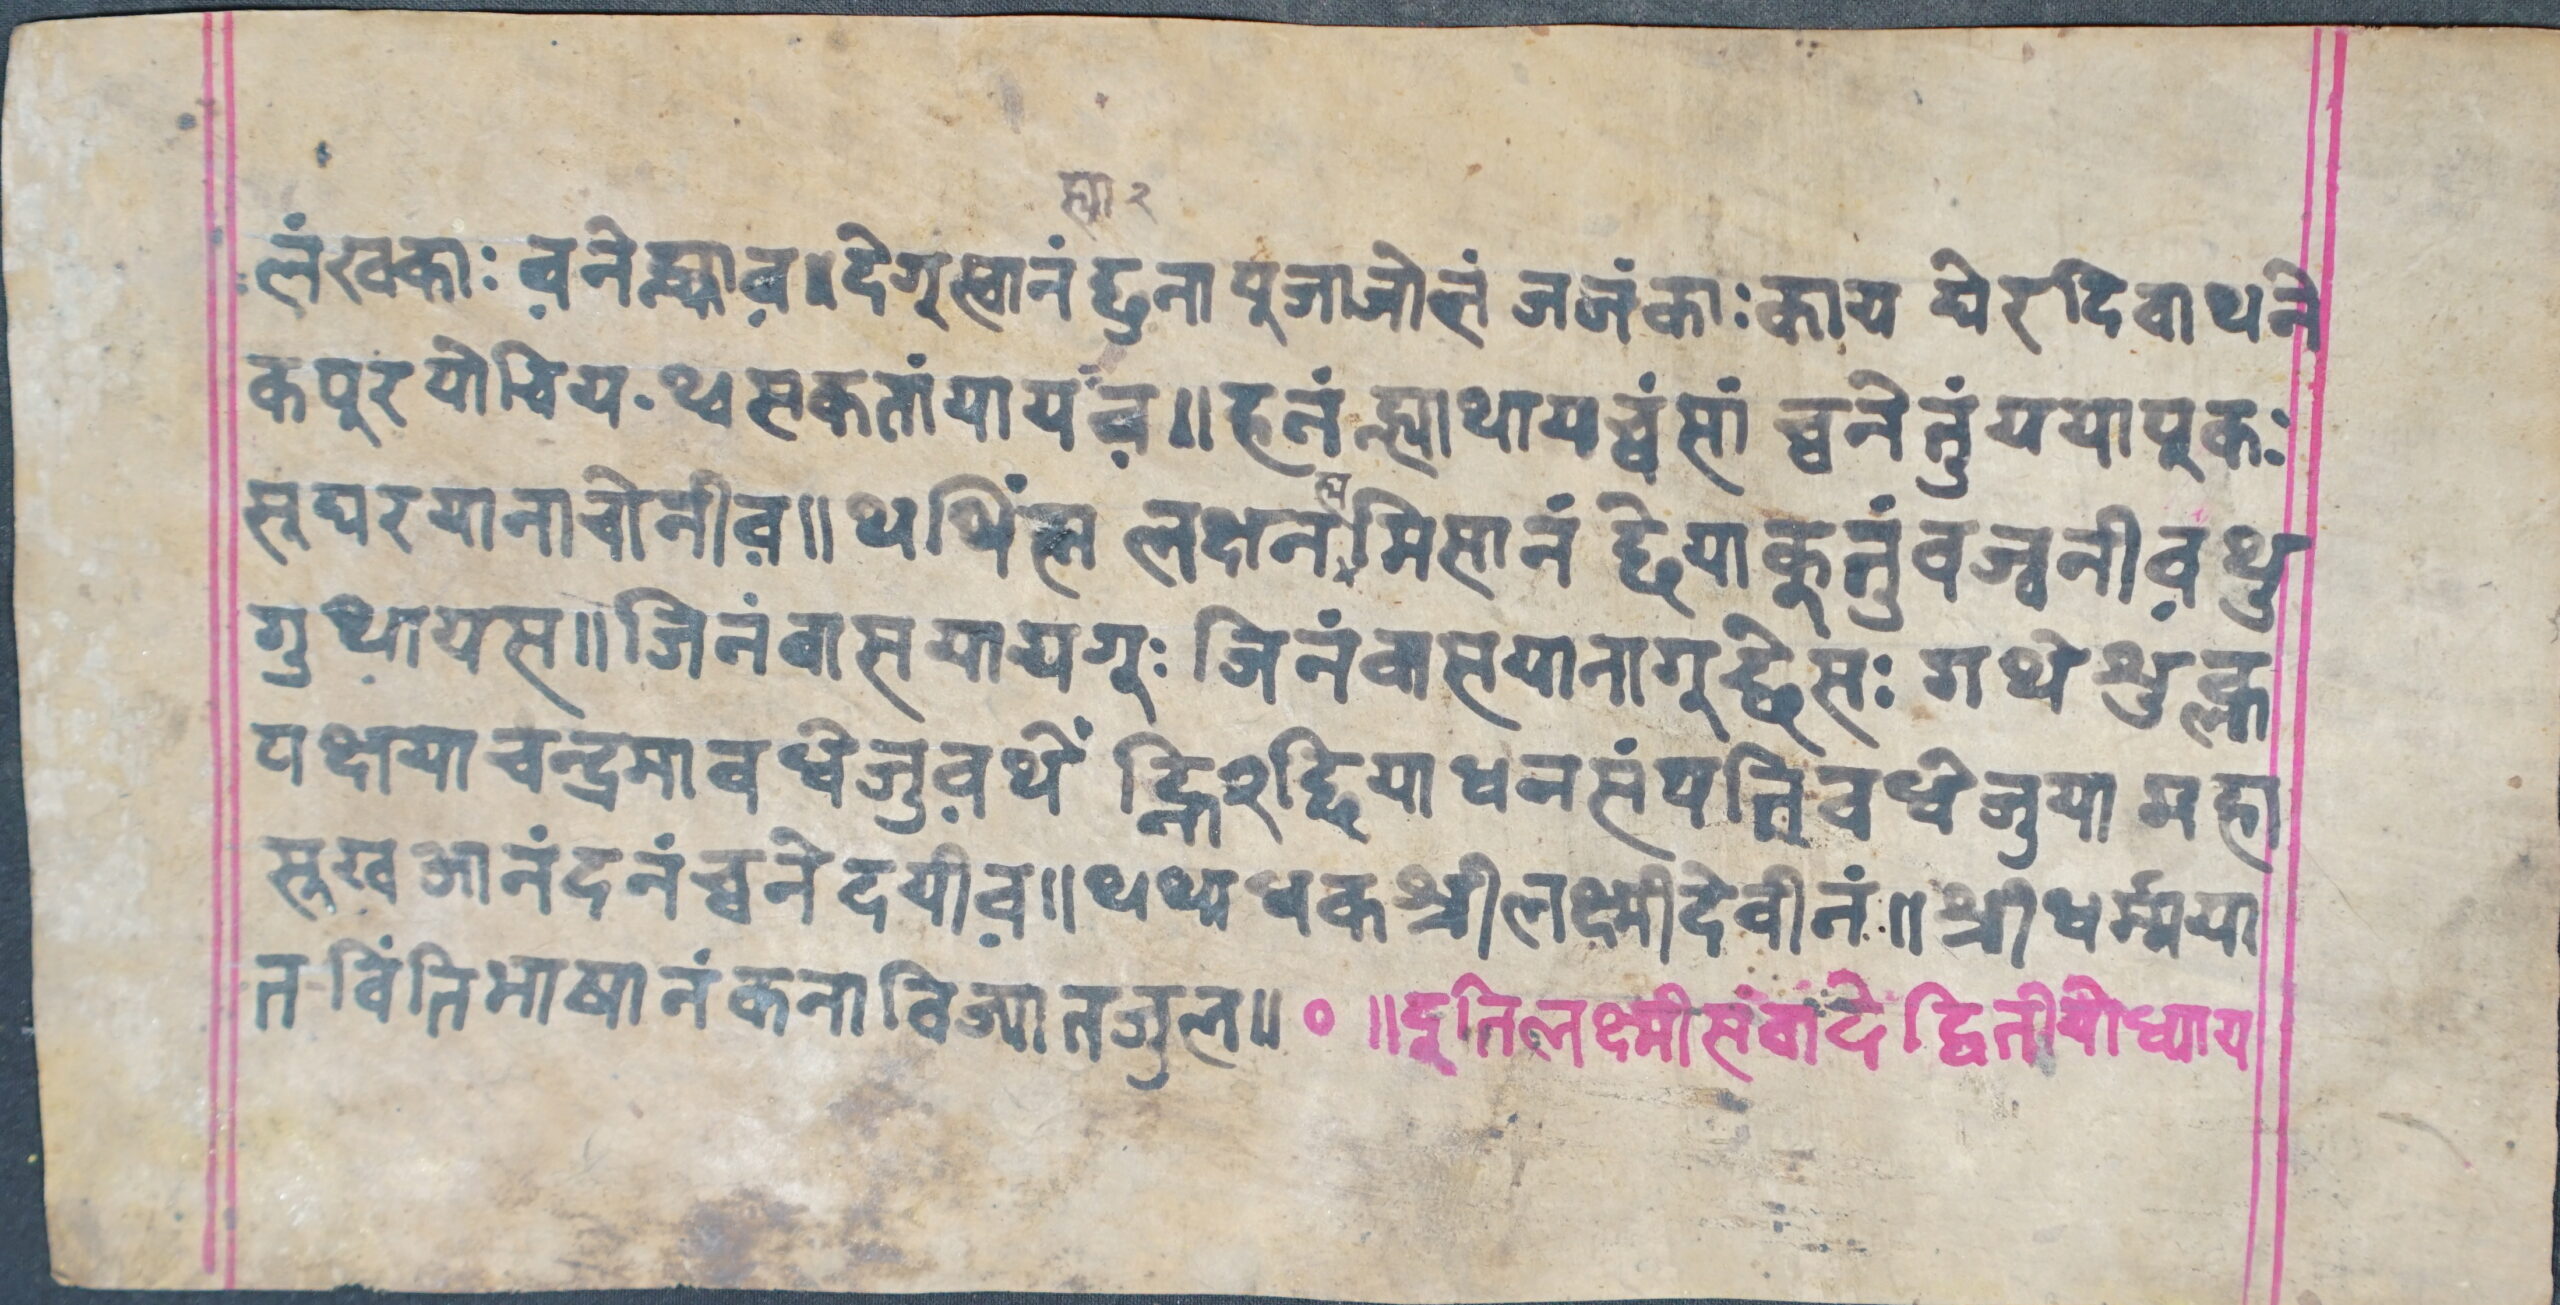 ह्या २
लंखकाः व़नेह्माव़। देगूस्वानं द्दुना पूजाजोलं जजंकाः काय घेर दिवाथने
कपूर योचिय. थ्वसकतां यायव़॥ हनं ह्माथायच्वंसां च्वनेतुं ययापूकः
सूघरयानाचोनीव़॥ थथिंह्म लक्षन ह्म मिसानं छेयाकूतुंवज्वनीव़ थु
गुथायस॥ जिनंवासयायगूः जिनंवासयानागूछेसः गथे शुल्क
पक्षया चन्द्रमावध्वेजुव़थें ह्नि२छिया धनसंपत्तिवध्वेजुया महा
सूख आनंदनंच्वनेदयीव़॥ थथ्यधक श्रीलक्ष्मीदेवीनं॥ श्रीधर्म्मया
त विंतिभाषानं कनाविज्यातजुल॥ ० ॥ इति लक्ष्मीसंवादे द्वितीयोध्याय